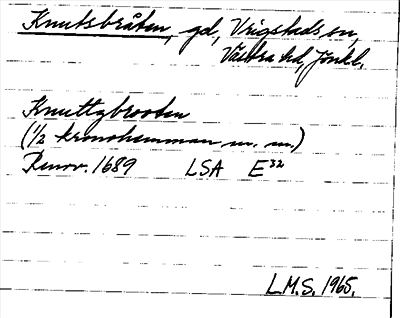 Knutsbråten, gd, Vrigstads sn,
Västra hd, Jönkl.
Knuttzbrooten
(1/2 kronohemman m. m.)
Renov. 1689 LSA E³²
L.M.S. 1965.